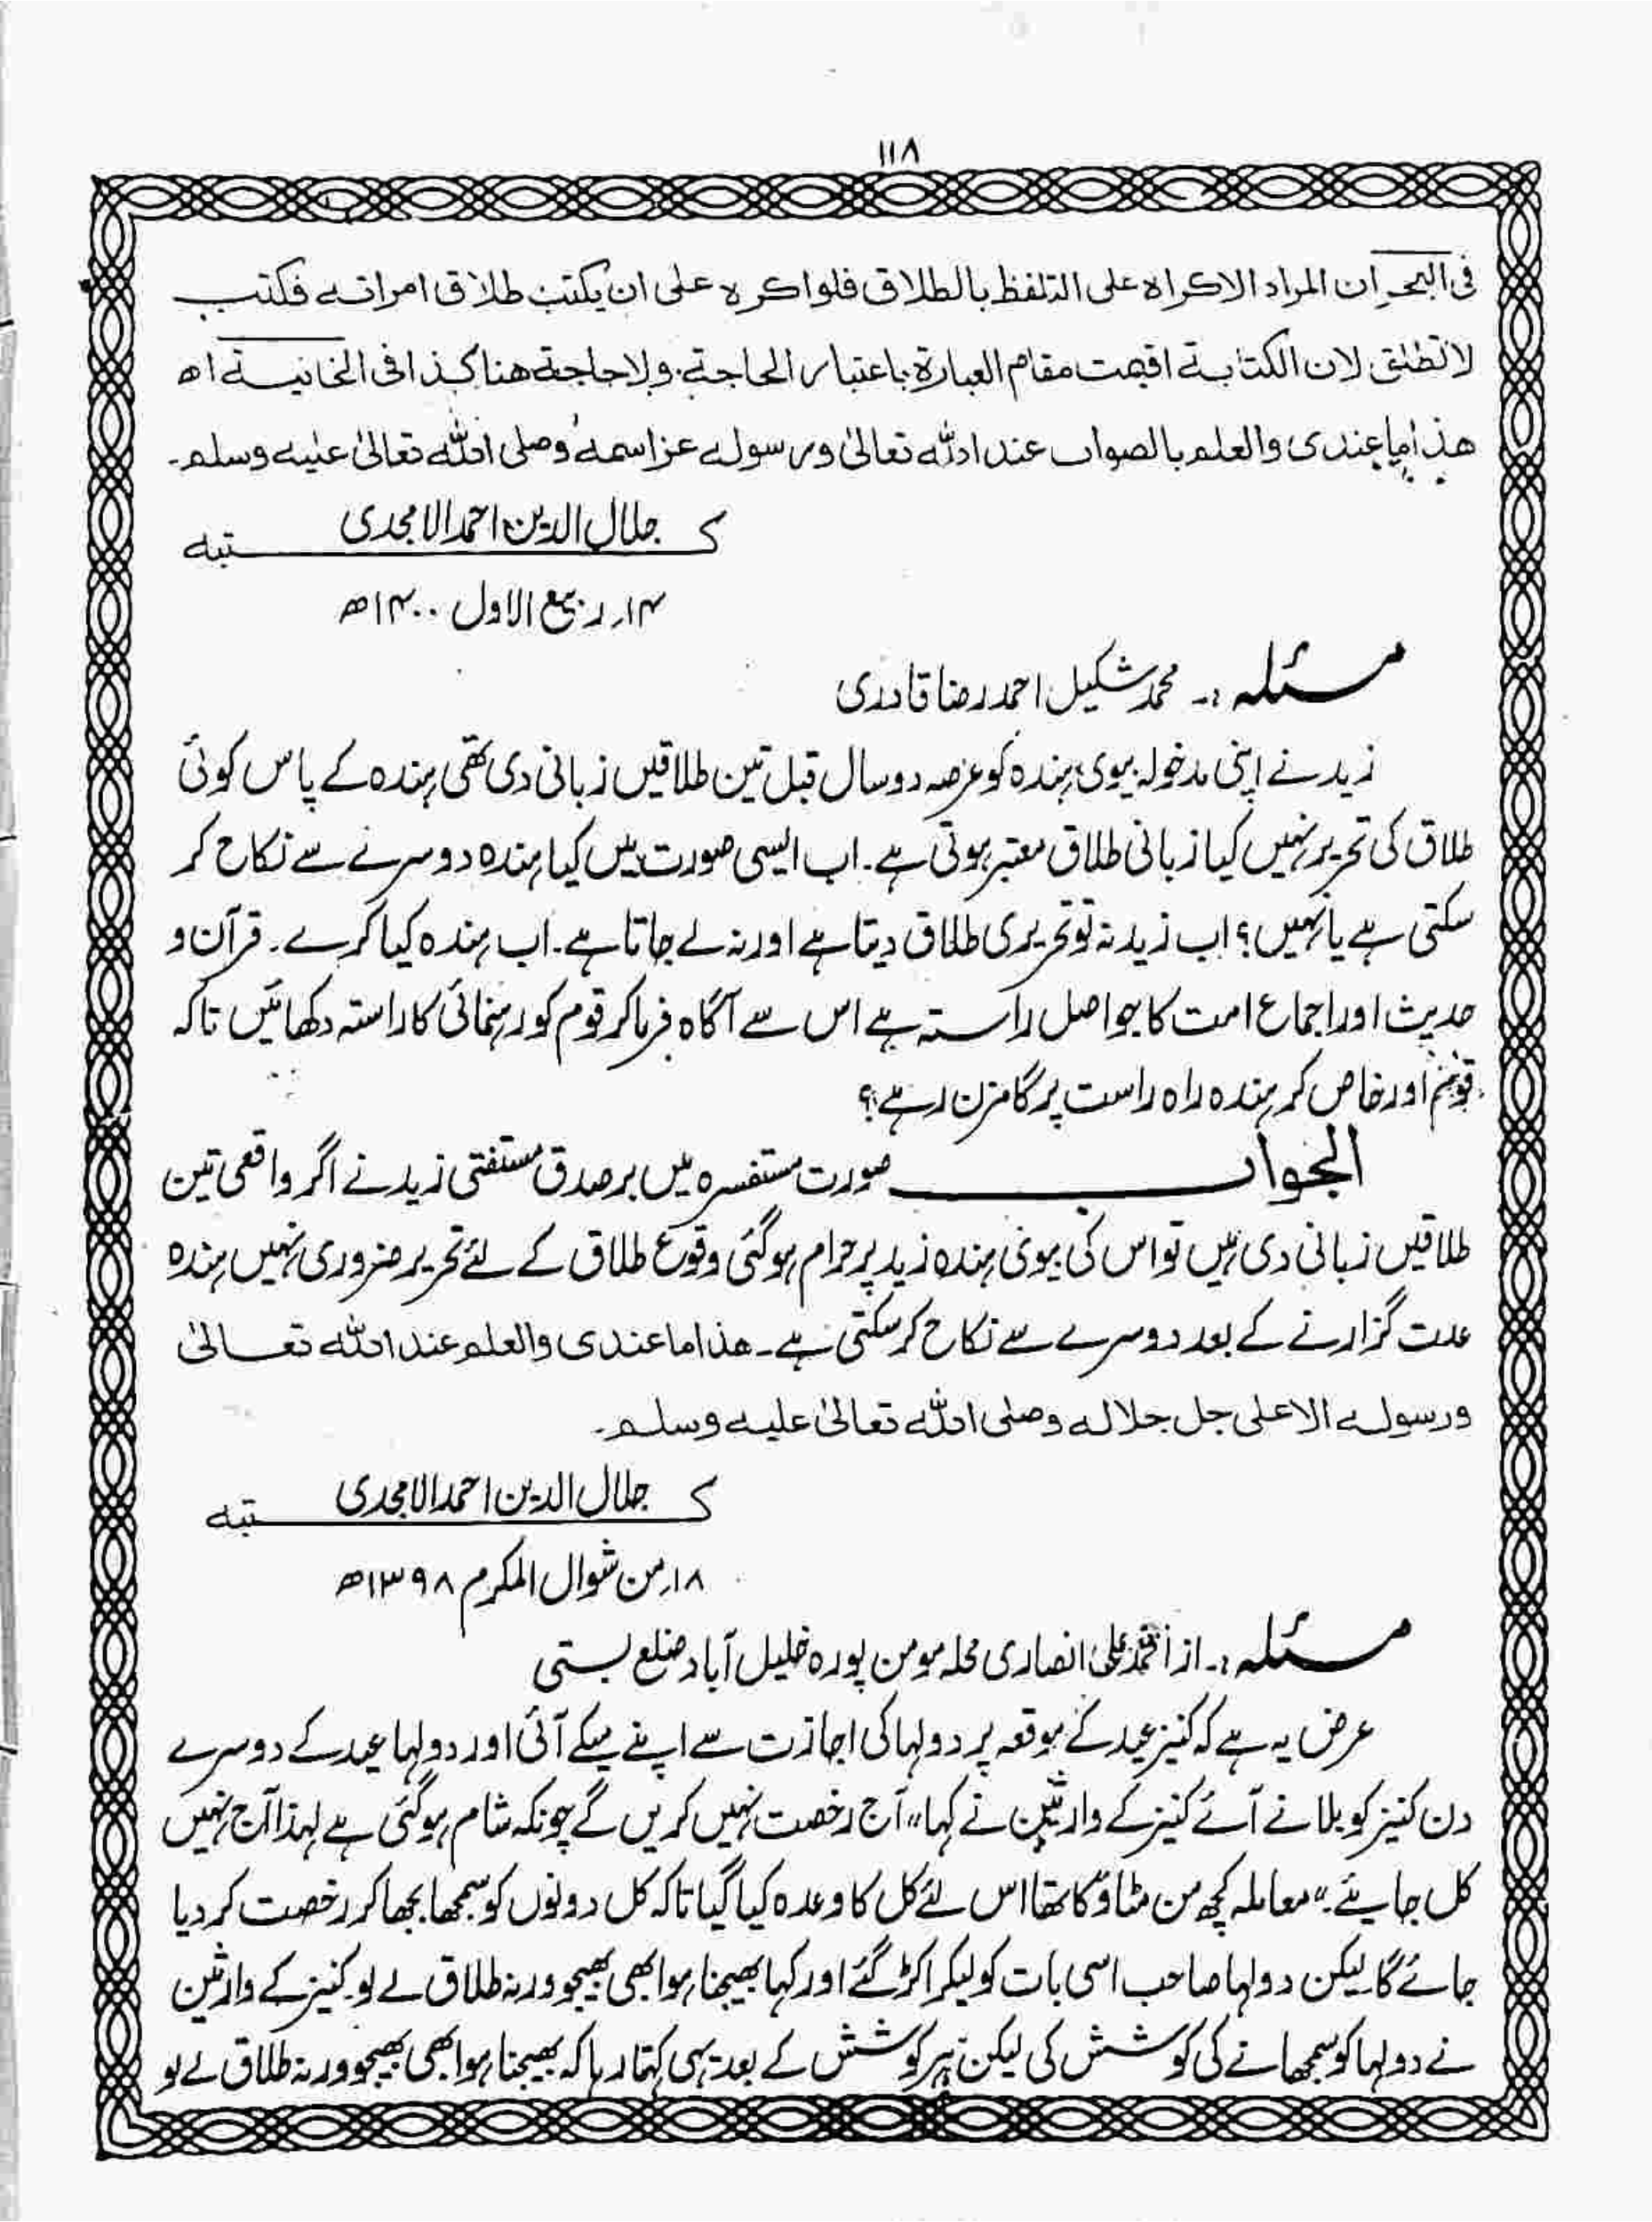 ۱۱۸
فی البحر ان المراد الاکراہ علی التلفظ بالطلاق فلو اکرہ علی ان یکتب طلاق امراتہ فکتب
لا تطلق لان الکتابۃ اقیمت مقام العبارۃ باعتبار الحاجۃ ولا حاجۃ ھنا کذا فی الخانیۃ اھ
ھذا ما عندی والعلم بالصواب عند اللہ تعالیٰ ورسولہ عز اسمہ وصلی اللہ تعالیٰ علیہ وسلم۔
کتبہ جلال الدین احمد الامجدی
۱۴؍ ربیع الاول ۱۴۰۰ھ
مسئلہ :۔ محمد شکیل احمد رضا قادری
زید نے اپنی مدخولہ بیوی ہندہ کو عرصہ دو سال قبل تین طلاقیں زبانی دی تھی ہندہ کے پاس کوئی
طلاق کی تحریر نہیں کیا زبانی طلاق معتبر ہوتی ہے۔ اب ایسی صورت میں کیا ہندہ دوسرے سے نکاح کر
سکتی ہے یا نہیں؟ اب زید نہ تو تحریری طلاق دیتا ہے اور نہ لے جاتا ہے۔ اب ہندہ کیا کرے۔ قرآن و
حدیث اور اجماع امت کا جو اصل راستہ ہے اس سے آگاہ فرما کر قوم کو رہنمائی کا راستہ دکھائیں تاکہ
قوم اور خاص کر ہندہ راہ راست پر گامزن رہے؟
الجواب صورت مستفسرہ میں بر صدق مستفتی زید نے اگر واقعی تین
طلاقیں زبانی دی ہیں تو اس کی بیوی ہندہ زید پر حرام ہو گئی وقوع طلاق کے لئے تحریر ضروری نہیں ہندہ
عدت گزارنے کے بعد دوسرے سے نکاح کر سکتی ہے۔ ھذا ما عندی والعلم عند اللہ تعالیٰ
ورسولہ الاعلی جل جلالہ وصلی اللہ تعالیٰ علیہ وسلم۔
کتبہ جلال الدین احمد الامجدی
۱۸؍ من شوال المکرم ۱۳۹۸ھ
مسئلہ :۔ از علی انصاری محلہ مومن پورہ خلیل آباد ضلع بستی
عرض یہ ہے کہ کنیز عید کے موقعہ پر دولہا کی اجازت سے اپنے میکے آئی اور دولہا عید کے دوسرے
دن کنیز کو بلانے آئے کنیز کے وارثین نے کہا "آج رخصت نہیں کریں گے چونکہ شام ہو گئی ہے لہذا آج نہیں
کل جایئے" معاملہ کچھ من مٹاؤ کا تھا اس لئے کل کا وعدہ کیا گیا تاکہ کل دونوں کو سمجھا بجھا کر رخصت کر دیا
جائے گا۔ لیکن دولہا صاحب اسی بات کو لیکر اکڑ گئے اور کہا بھیجنا ہو ابھی بھیجو ورنہ طلاق لے لو۔ کنیز کے وارثین
نے دولہا کو سمجھانے کی کوشش کی لیکن ہر کوشش کے بعد یہی کہتا رہا کہ بھیجنا ہو ابھی بھیجو ورنہ طلاق لے لو